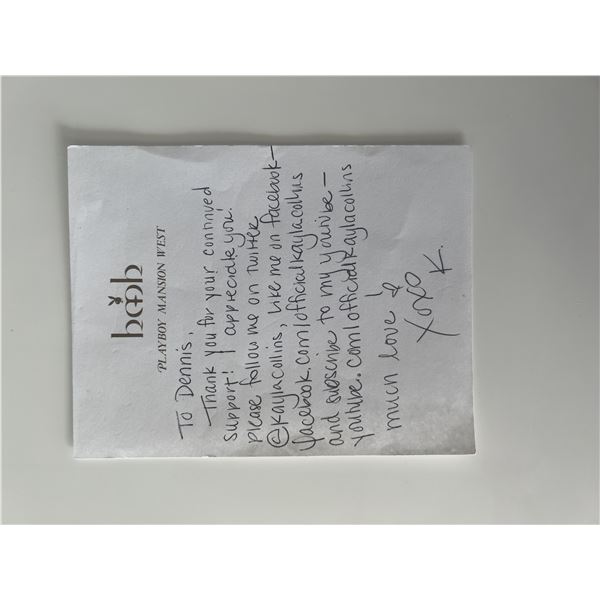 PLAYBOY MANSION WEST
To Dennis,
Thank you for your continued
support! I appreciate you!
please follow me on twitter
@kaylacollins, like me on facebook-
facebook.com/officialkaylacollins
and subscribe to my youtube-
youtube.com/officialkaylacollins
much love &
XOXO
K.